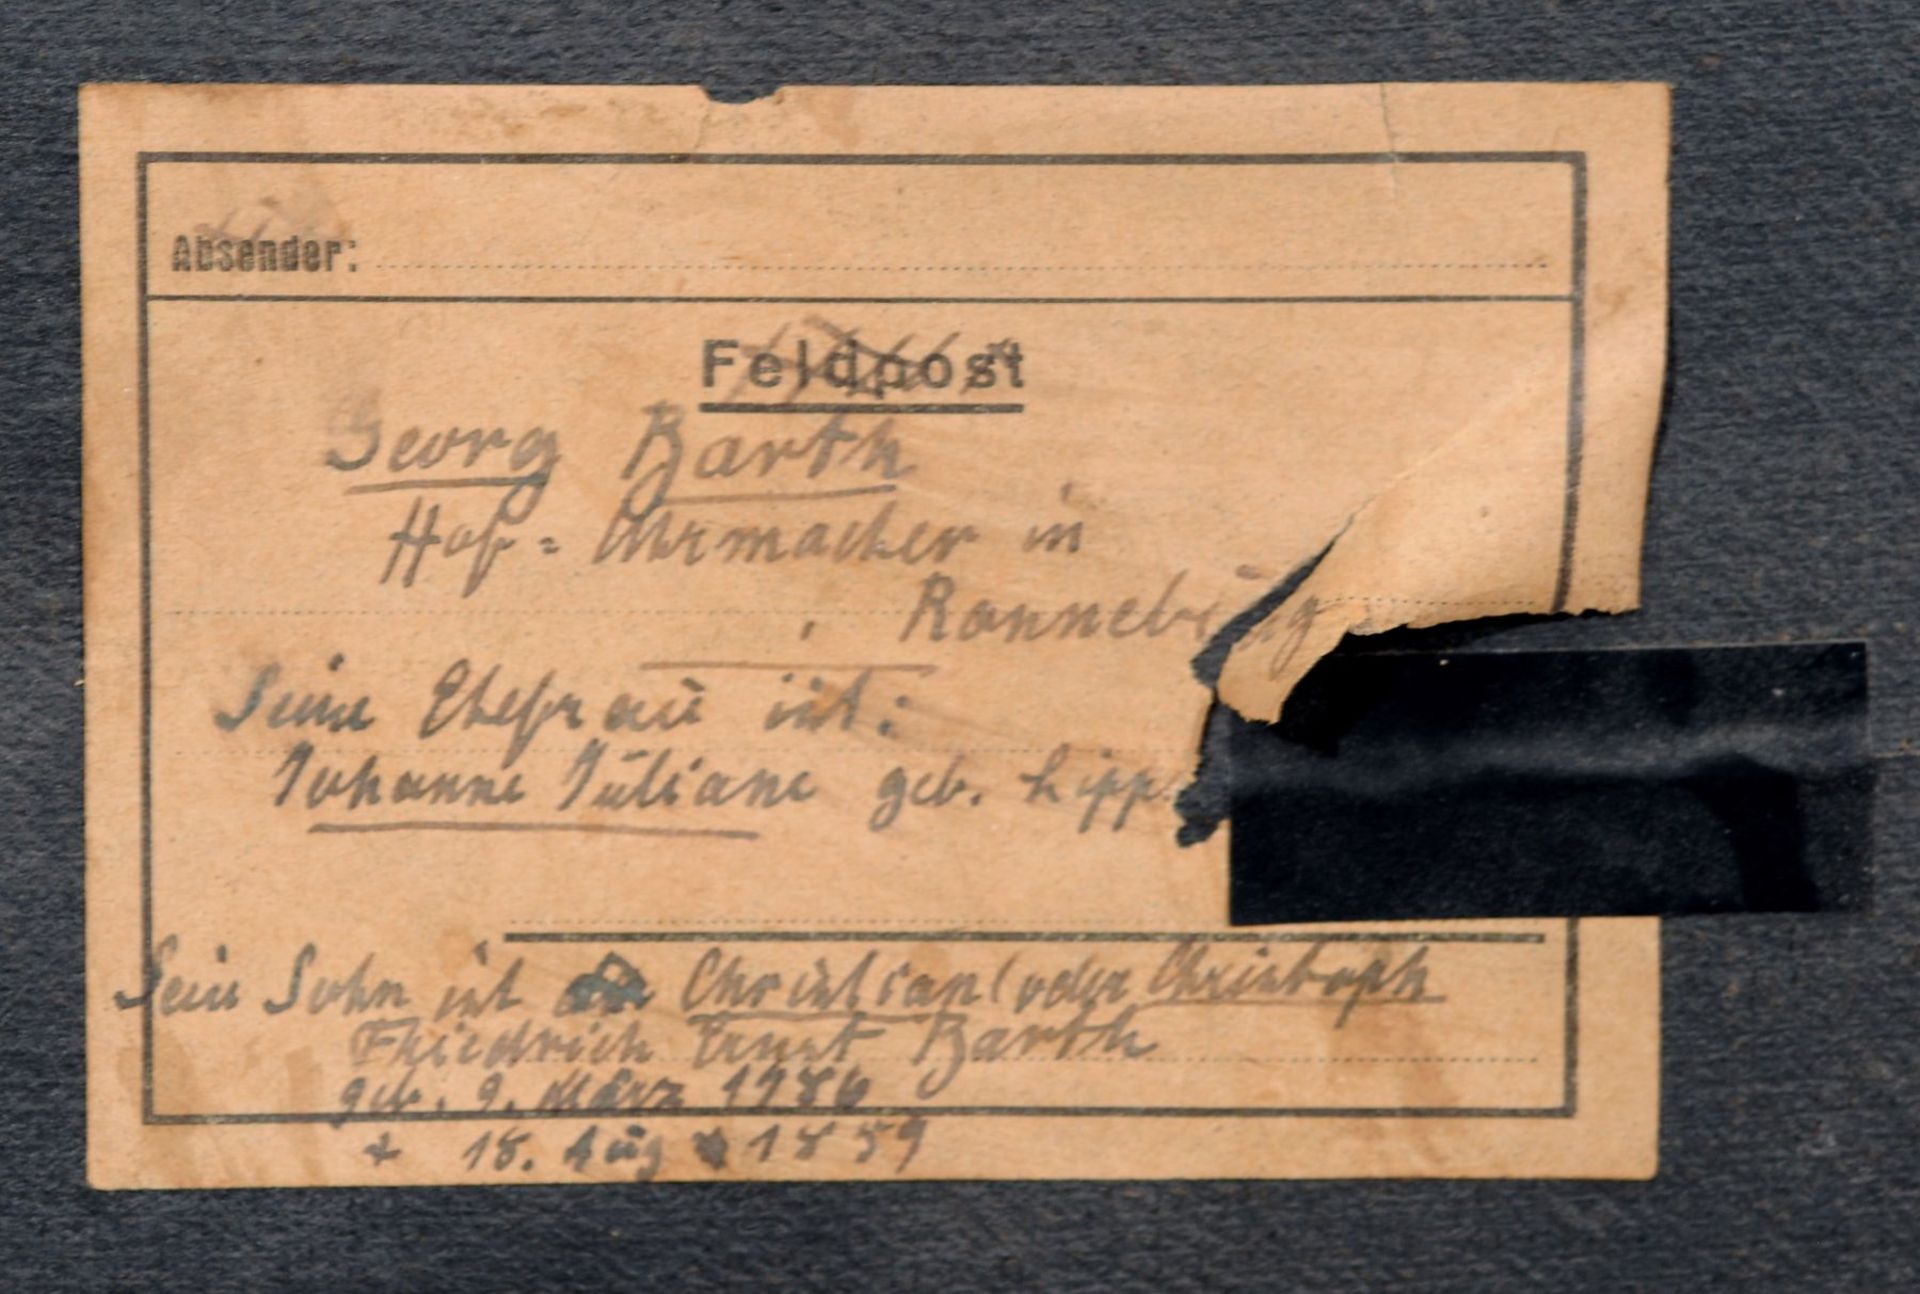 Absender:
Feldpost
Georg Barth
Hof = Uhrmacher in
Ronneburg
Seine Ehefrau ist:
Johanne Juliane geb. Lipp
Sein Sohn ist Christian (oder Christoph
Friedrich Ernst Barth
geb. 9. März 1786
+ 18. Aug 1859